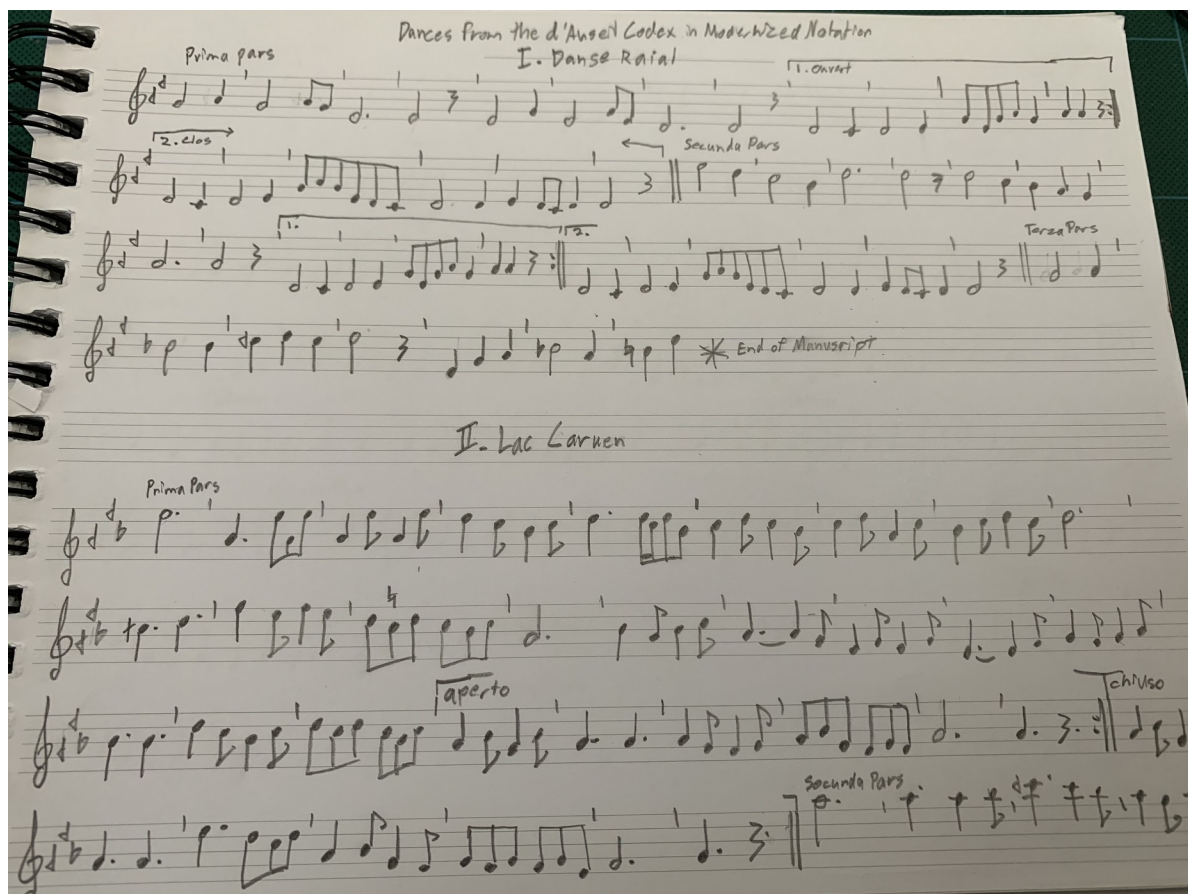 Dances from the d'Auseil Codex in Modernized Notation
I. Danse Raial
Prima pars
1. Ouvert
2. Clos
Secunda Pars
1.
2.
Terza Pars
End of Manuscript
II. Lac Carnen
Prima Pars
aperto
chivso
Secunda Pars